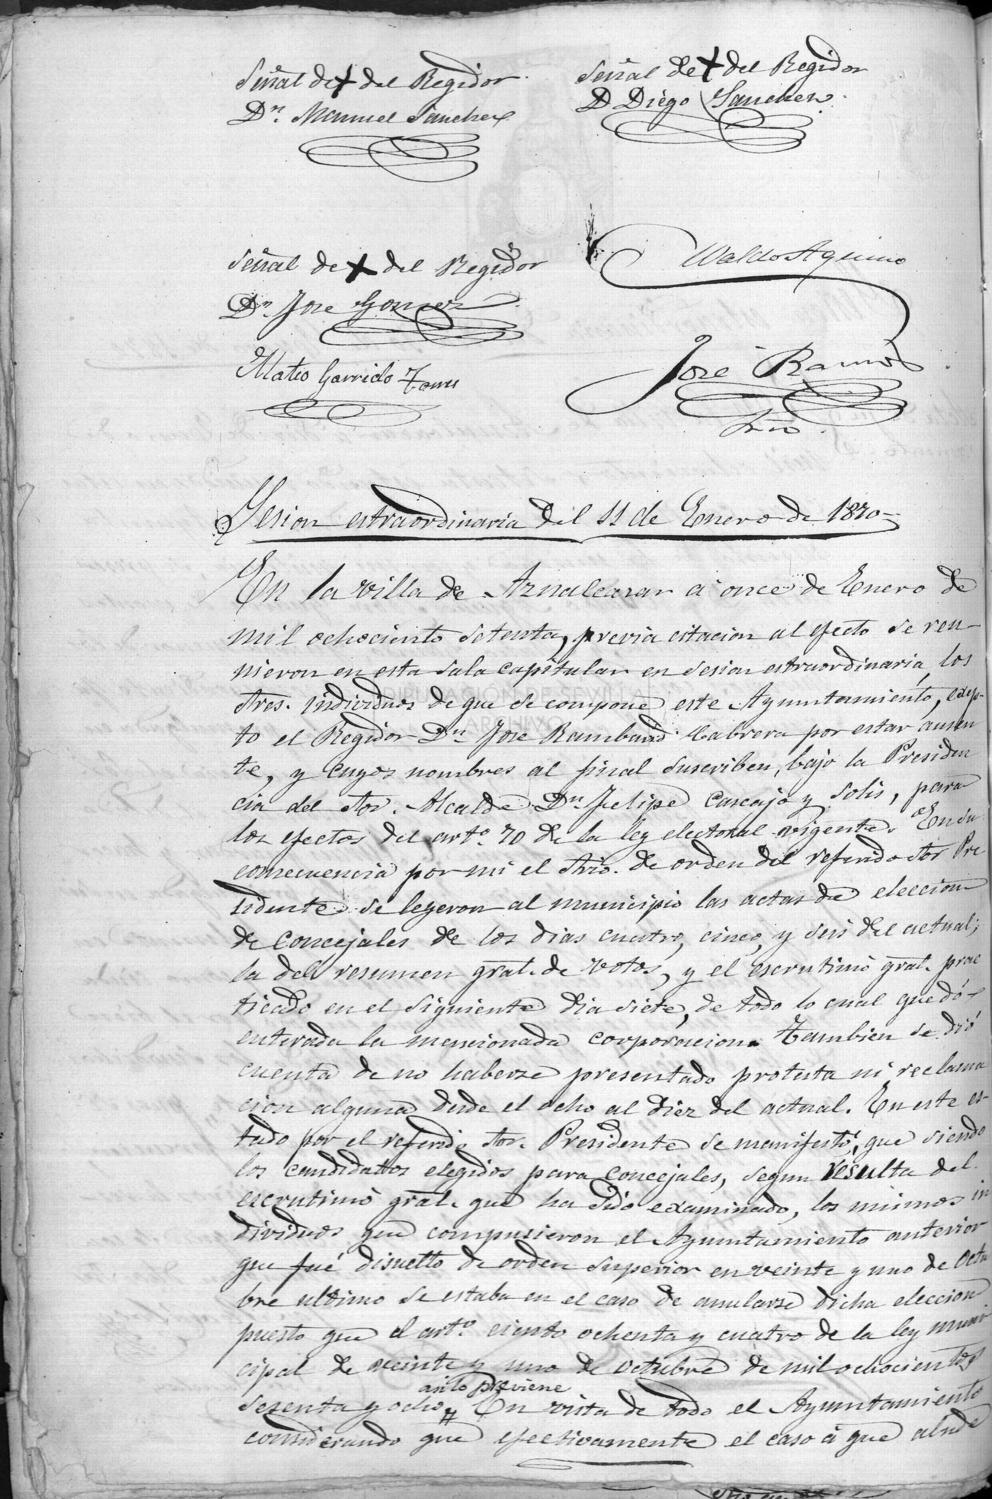 Señal de + del Regidor
Dn. Manuel Sanchez
Señal de + del Regidor
D Diego Sanchez
Señal de + del Regidor
Dn. Jose Gomez
Waldo Aquino
Mateo Garrido
Jose Ramos
Srio.
Sesion estraordinaria del 11 de Enero de 1870
En la villa de Aznalcazar a once de Enero de
mil ochociento setenta, previa citacion al efecto se reu-
nieron en esta sala capitular en sesion estraordinaria, los
Sres. individuos de que se compone este Ayuntamiento, esep-
to el Regidor Dn Jose Rambaud Cabrera por estar ausen
te, y cuyos nombres al final suscriben, bajo la Presiden
cia del Sor. Alcalde Dn Felipe Carcajo y Solis, para
los efectos del arto. 70 de la ley electoral vigente. En su
consecuencia por mi el Srio. de orden del referido Sor Pre
sidente se leyeron al municipio las actas de eleccion
de concejales de los dias cuatro, cinco, y seis del actual;
la del resumen gral. de votos, y el escrutinio gral. prac
ticado en el siguiente dia siete, de todo lo cual quedó
enterada la mencionada corporacion. Tambien se dió
cuenta de no haberse presentado protesta ni reclama
cion alguna desde el ocho al diez del actual. En este es-
tado por el referido Sor. Presidente se manifestó, que siendo
los candidatos elegidos para concejales, segun resulta del
escrutinio gral. que ha sido examinado, los mismos in
dividuos que compusieron el Ayuntamiento anterior
que fué disuelto de orden superior en veinte y uno de Octu
bre ultimo se estaba en el caso de anularse dicha eleccion
puesto que el arto. ciento ochenta y cuatro de la ley muni
cipal de veinte y uno de octubre de mil ochocientos
asi lo previene
sesenta y ocho, En vista de todo el Ayuntamiento
considerando que efectivamente el caso á que alude
DIPUTACION DE SEVILLA
ARCHIVO